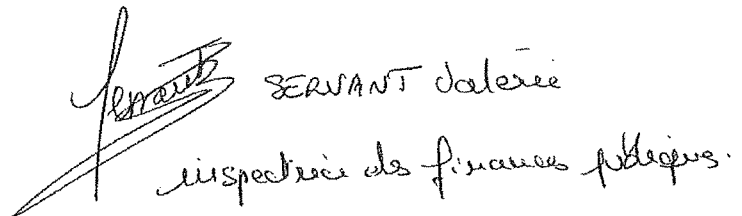 Servant SERVANT Valérie
inspectrice des finances publiques.